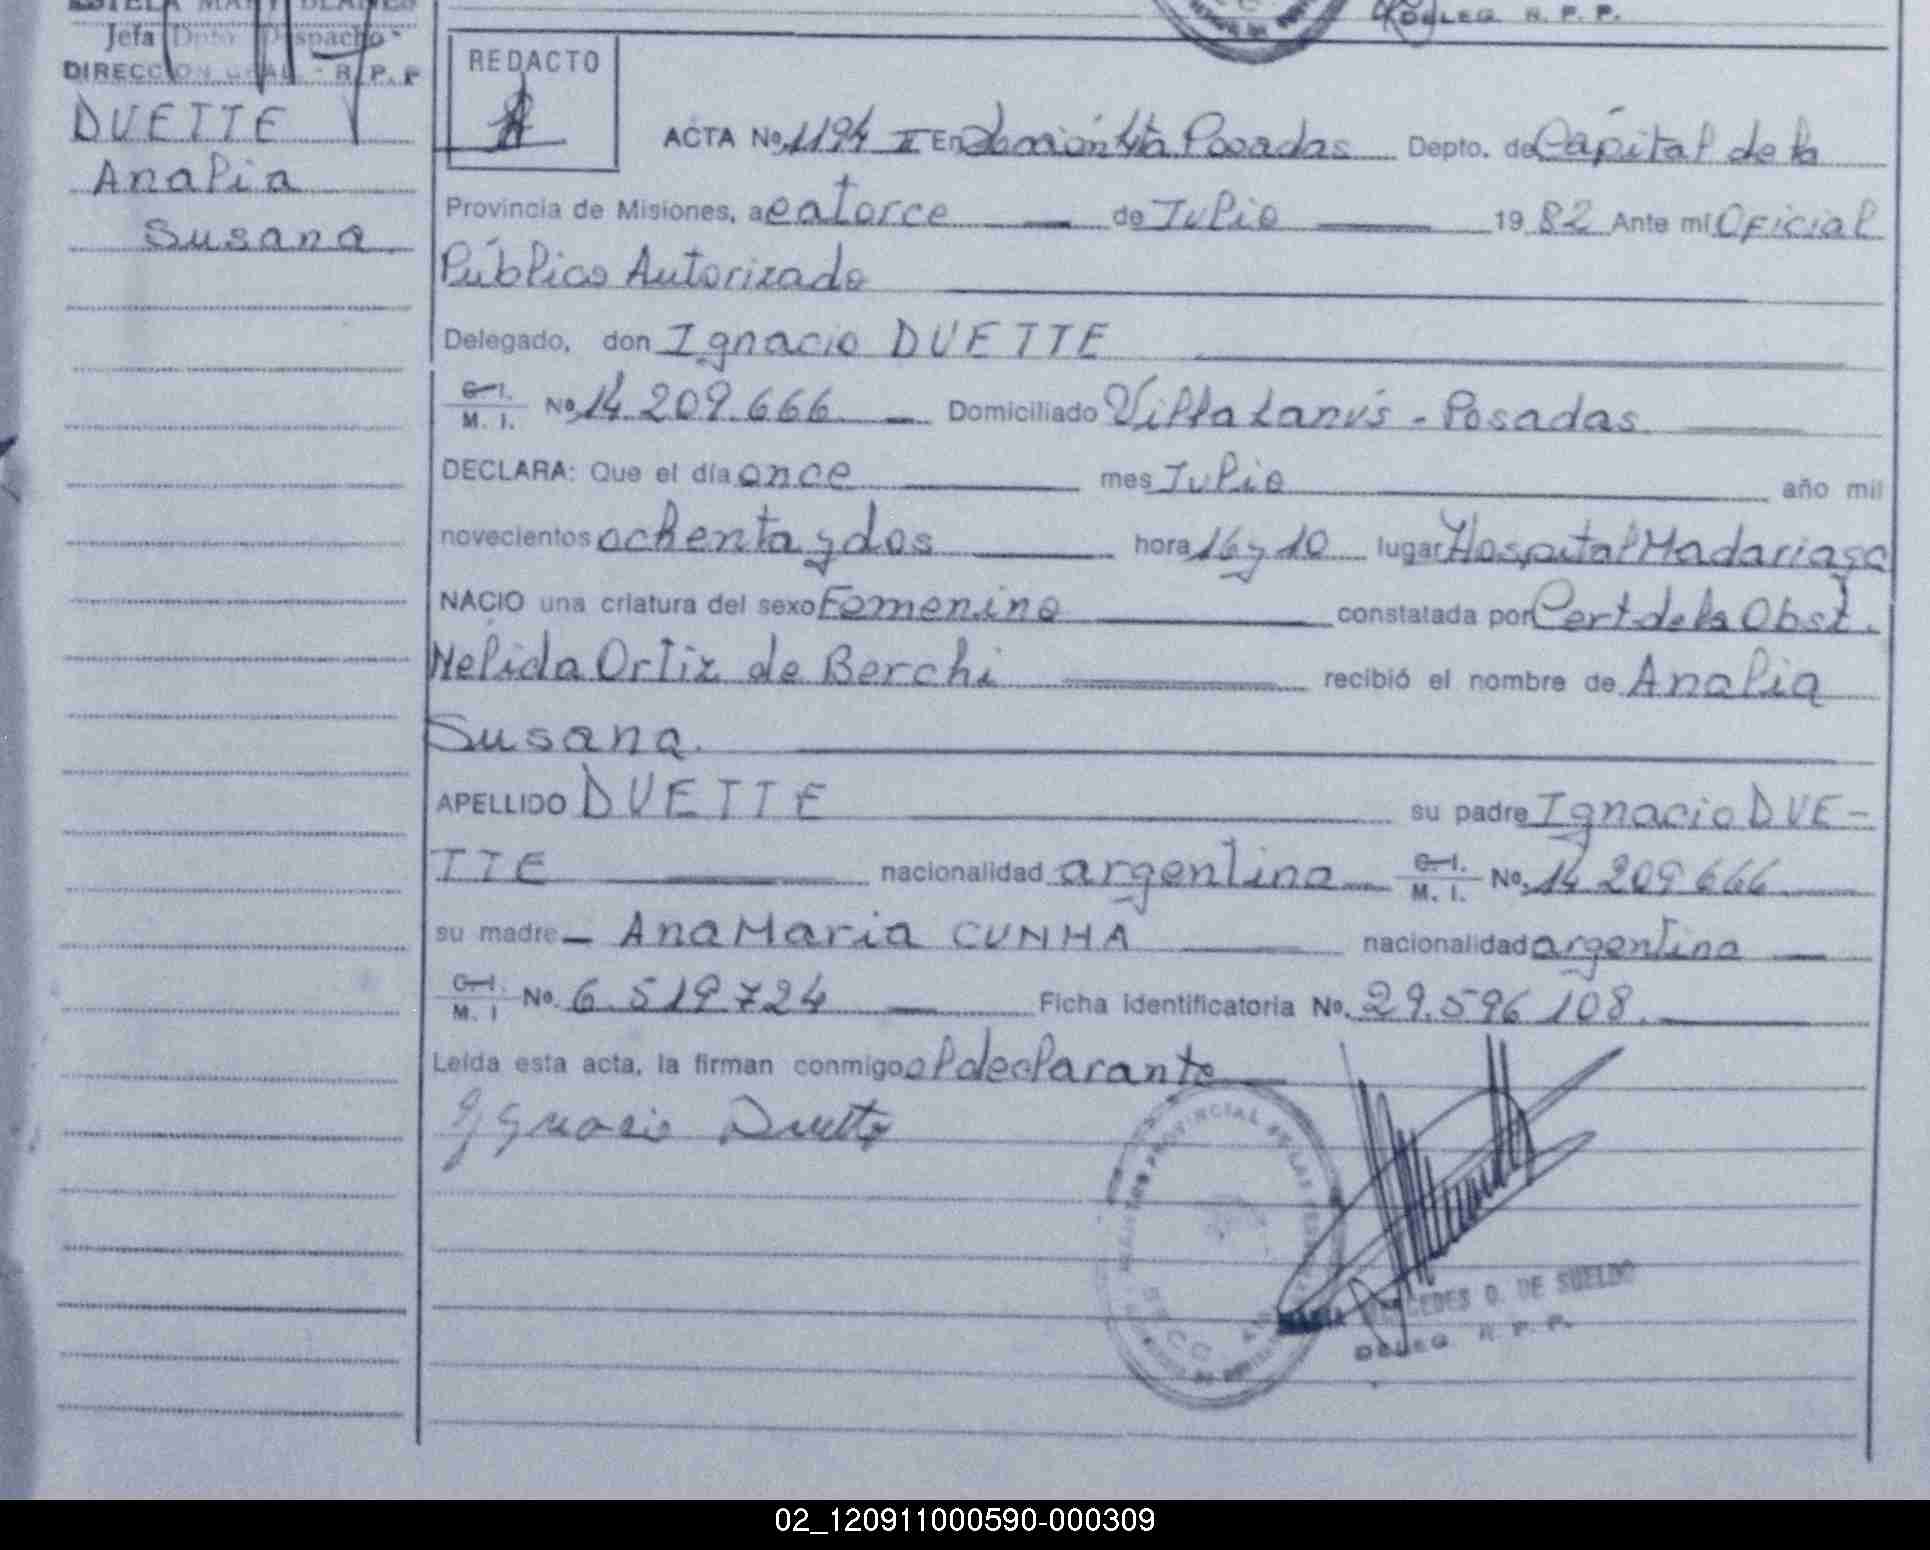 ESTELA MARY BLANES
Jefa Dpto Despacho
DIRECCION GRAL - R. P. P
DUETTE
Analia
Susana.
DELEG R. P. P.
REDACTO
ACTA No. 1194 II En Posadas Depto. de Capital de la
Provincia de Misiones, a catorce de Julio 1982 Ante mí Oficial
Público Autorizado
Delegado, don Ignacio DUETTE
C. I. M. I. No 14 209.666 Domiciliado Villa Lanús - Posadas
DECLARA: Que el día once mes Julio año mil
novecientos ochenta y dos hora 16 y 10 lugar Hospital Madariaga
NACIO una criatura del sexo Femenino constatada por Cert de la Obst.
Nelida Ortiz de Berchi recibió el nombre de Analia
Susana.
APELLIDO DUETTE su padre Ignacio DUE-
TTE nacionalidad argentina C. I. M. I. No. 14 209 666
su madre - Ana Maria CUNHA nacionalidad argentina
C. I. M. I No. 6.519 724 Ficha identificatoria No. 29.596 108.
Leída esta acta, la firman conmigo el declarante
Ygnacio Duette
MARIA MERCEDES O. DE SUELDO
DELEG R. P. P.
02_120911000590-000309